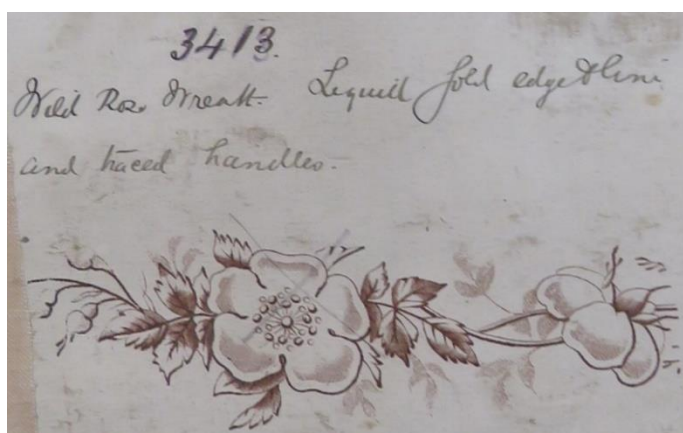 3413.
Wild Rose Wreath. Liquid Gold edge & line
and traced handles.